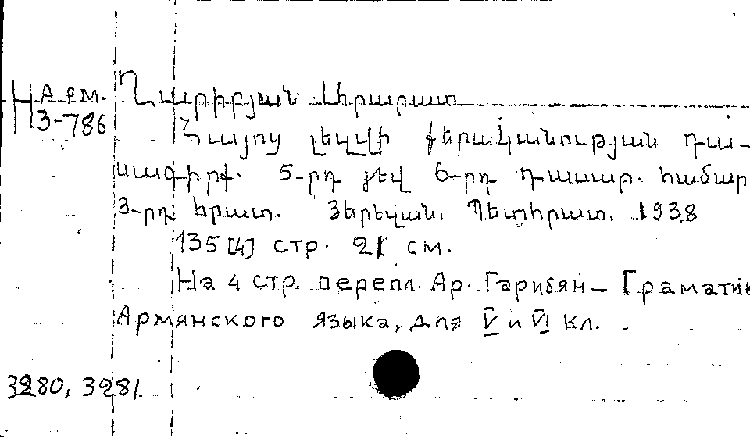 Н Арм. Ղարիբյան Արարատ
3-786
Հայոց լեզվի քերականության դա-
սագիրք. 5-րդ յեվ 6-րդ դասար. համար
3-րդ հրատ. Յերեվան, Պետհրատ, 1938
135 [4] стр. 21 см.
На 4 стр. перепл. Ар. Гарибян – Граматик
Армянского языка, для V и VI кл.
3280, 3281